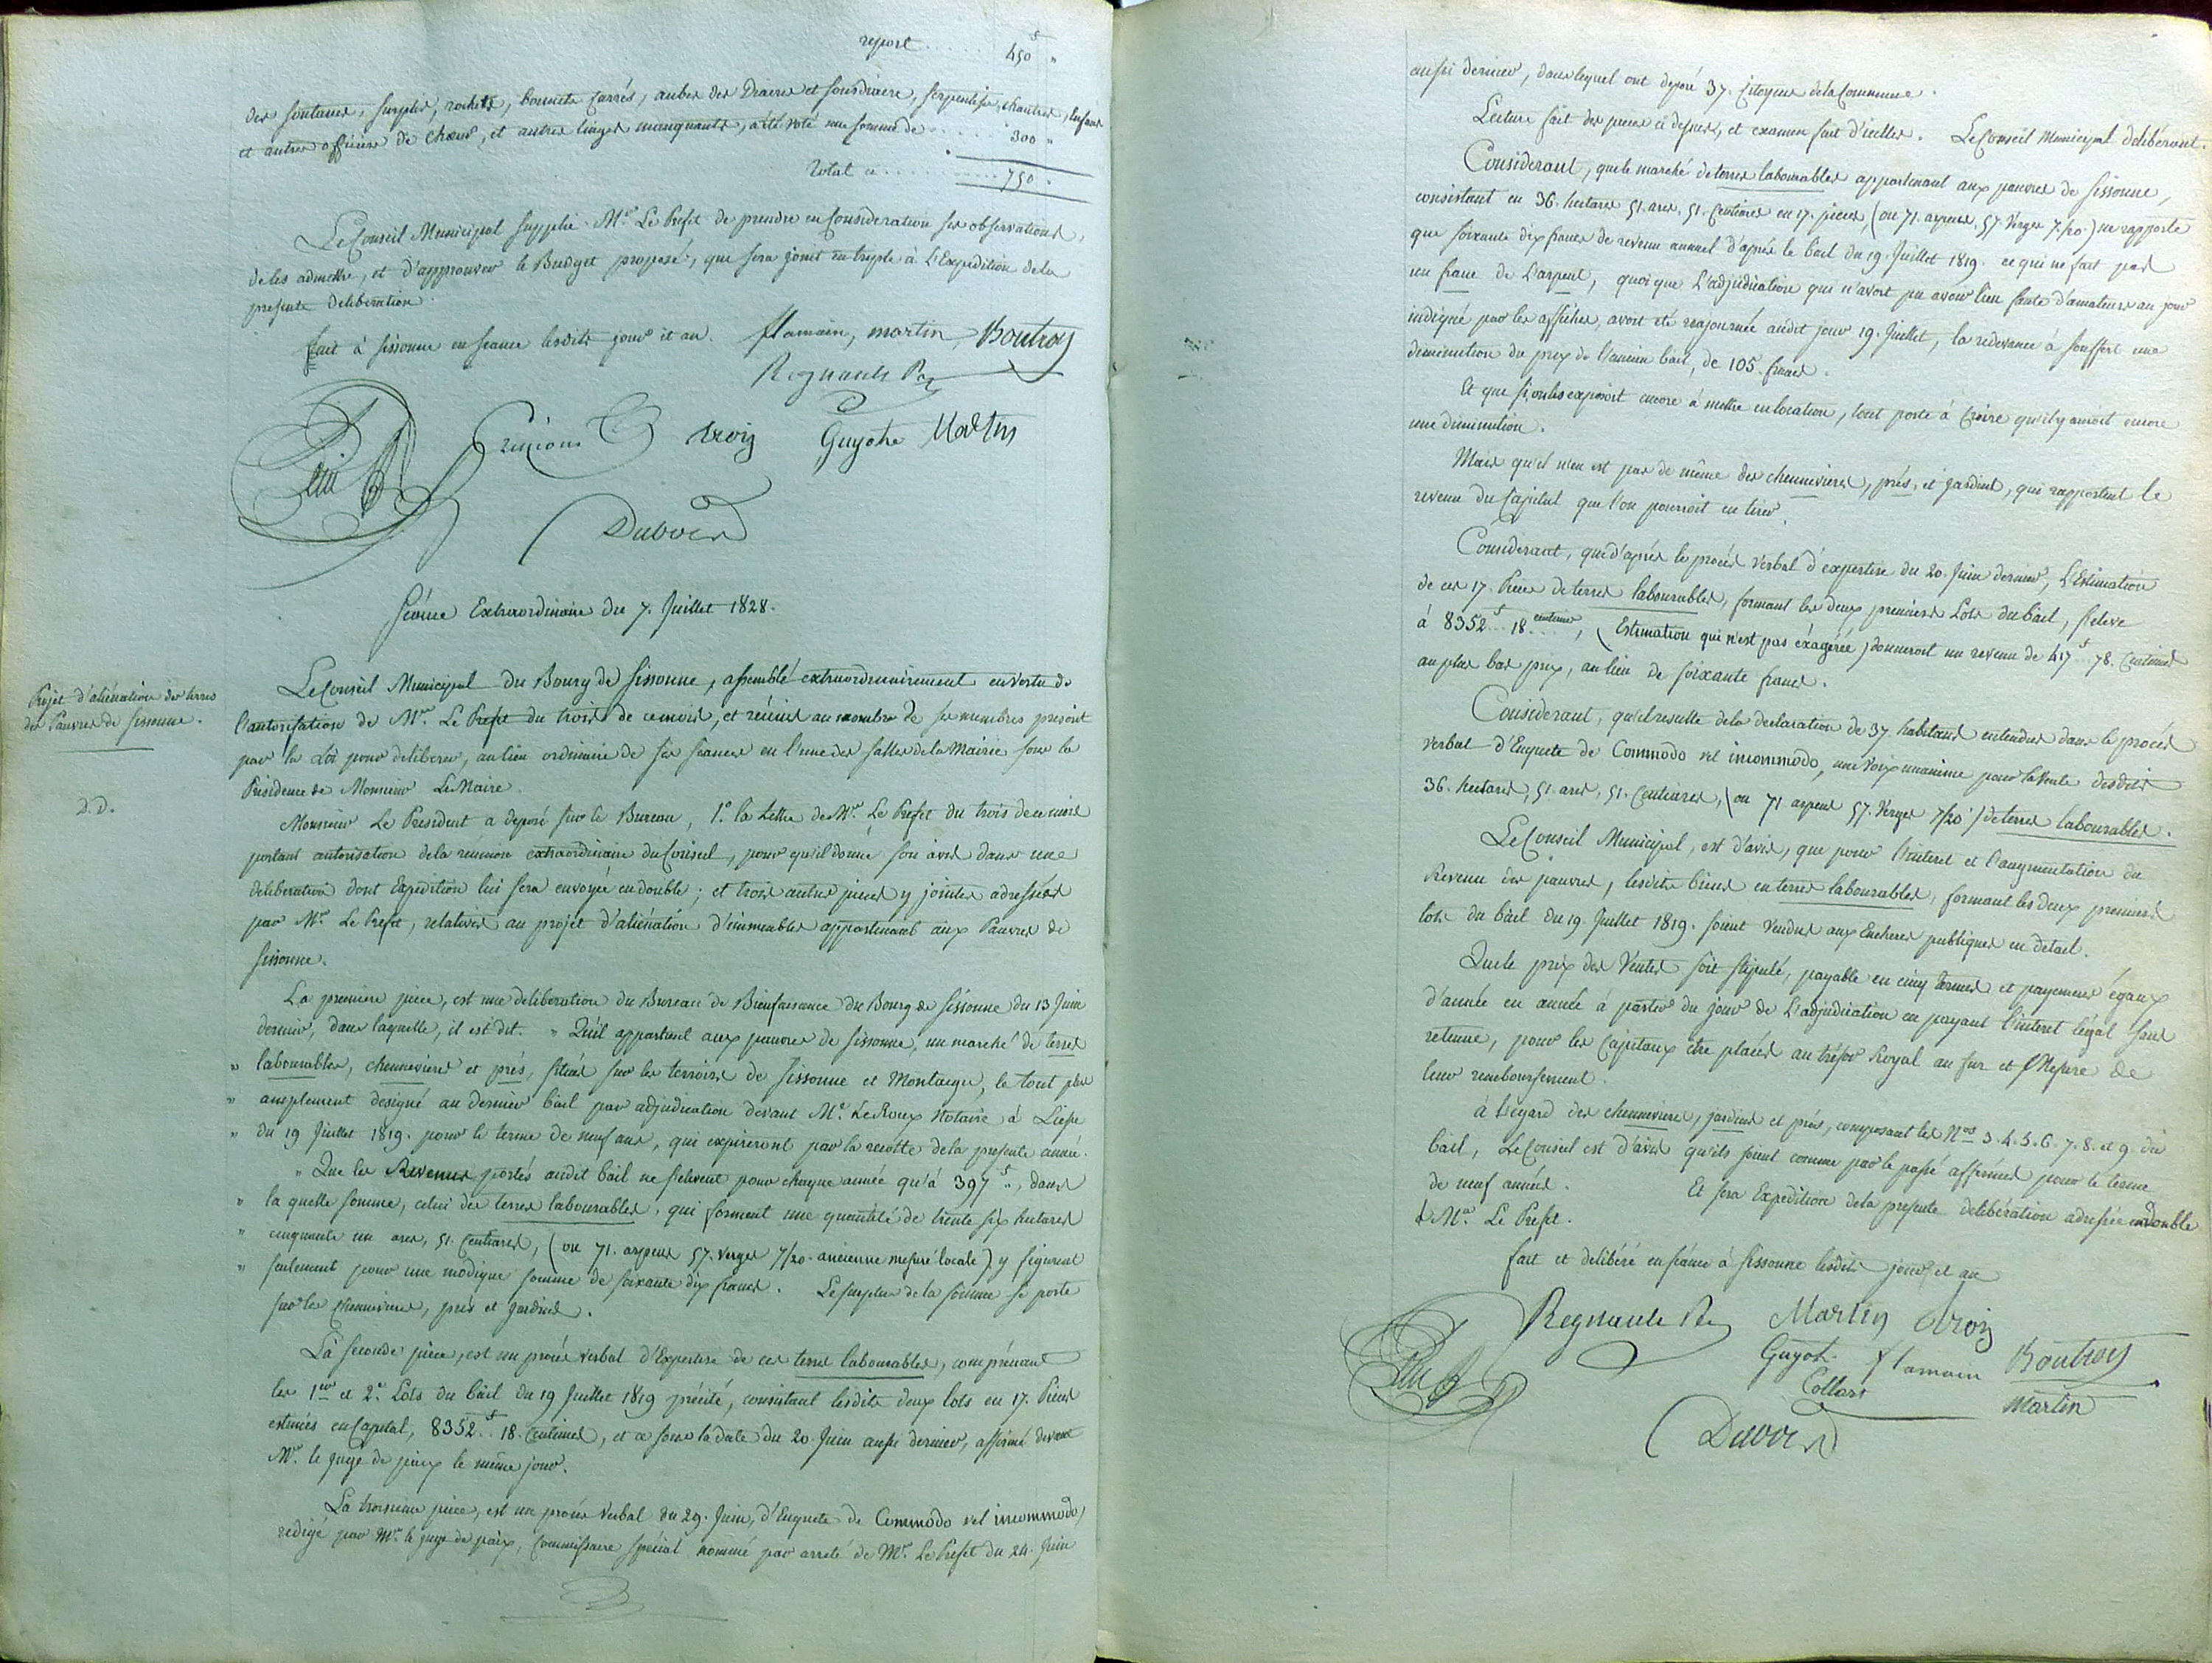 report ........ 450 f "
des soutanes, surplis, rochets, bonnets carrés, aubes des Diacres et sousdiacre, serpentiste, chantres, Enfans
et autres officiers de chœur, et autres linges manquants, a été voté une somme de ...... 300 "
Total ci ............ 750 "
Le Conseil Municipal supplie Mr. Le Prefet de prendre en Consideration ses observations,
de les admettre, et d'approuver le Budget proposé, que sera joint en triple à l'Expedition de la
presente deliberation.
fait à Sissonne en seance lesdits jour et an. flamain, martin, Boutroy
Regnault
troij Guyot Martin
Dubois
Séance Extraordinaire du 7. Juillet 1828.
Projet d'aliénation des terres
des Pauvres de Sissonne.
D.D.
Le Conseil Municipal du Bourg de Sissonne, assemblé extraordinairement en vertu de
l'autorisation de Mr. Le Prefet du trois de ce mois, et réuni au nombre de ses membres prescrit
par la Loi pour deliberer, au lieu ordinaire de ses seances en l'une des salles de la Mairie sous la
Présidence de Monsieur Le Maire.
Monsieur Le President a deposé sur le Bureau, 1.° la Lettre de Mr. Le Prefet du trois de ce mois
portant autorisation de la réunion extraordinaire du Conseil, pour qu'il donne son avis dans une
deliberation dont Expedition lui sera envoyée en double; et trois autres pieces y jointes adressées
par Mr. Le Prefet, relatives au projet d'aliénation d'immeubles appartenant aux Pauvres de
Sissonne.
La premiere piece, est une deliberation du Bureau de Bienfaisance du Bourg de Sissonne du 13 Juin
dernier, dans laquelle, il est dit. " Qu'il appartient aux pauvres de Sissonne, un marché de terres
" labourables, chennevieres et prés, situés sur les terroirs de Sissonne et Montaigu, le tout plus
" amplement designé au dernier bail par adjudication devant Me. Le Roux Notaire à Liesse
" du 19 Juillet 1819. pour le terme de neuf ans, qui expireront par la recolte de la presente année.
" Que les Revenus portés audit bail ne s'elevent pour chaque année qu'à 397 f "., dans
" la quelle somme, celui des terres labourables, qui forment une quantité de trente six hectares
" cinquante un ares, 51. Centiares, (ou 71. arpens 57. verges 7/20. ancienne mesure locale) y figurent
" seulement pour une modique somme de soixante dix francs. Le surplus de la somme se porte
sur les chennevieres, prés et jardins.
La seconde piece, est un procès verbal d'Expertise de ces terres labourables, comprenant
les 1er et 2e. Lots du bail du 19 Juillet 1819 précité, consistant lesdits deux lots en 17. Pieces
estimées en Capital, 8352 f .. 18. Centimes, et ce sous la date du 20. Juin aussi dernier, affirmé devant
Mr. le Juge de paix le même jour.
La troisieme piece, est un procès verbal du 29. Juin, d'Enquete de Commodo vel incommodo,
redigé par Mr. le Juge de paix, Commissaire spécial nommé par arreté de Mr. Le Prefet du 24. Juin
aussi dernier, dans lequel ont deposé 37. Citoyens de la Commune.
Lecture fait des pieces ci dessus, et examen fait d'icelles. Le Conseil Municipal deliberant.
Considerant, que le marché de terres labourables appartenant aux pauvres de Sissonne,
consistant en 36. hectares 51. ares, 51. Centiares en 17. pieces, (ou 71. arpens, 57 Verges 7/20.) ne rapporte
que soixante dix francs de revenu annuel d'après le bail du 19. Juillet 1819. ce qui ne fait pas
un franc de l'arpent, quoi que l'adjudication qui n'avoit pu avoir lieu faute d'amateurs au jour
indiqué par les affiches, avoit été reajournée audit jour 19. Juillet, la redevance a souffert une
diminution du prix de l'ancien bail, de 105. francs.
Et que si on les exposoit encore à mettre en location, tout porte à croire qu'il y auroit encore
une diminution.
Mais qu'il n'en est pas de même des chennevieres, prés, et jardins, qui rapportent le
revenu du Capital que l'on pourroit en tirer.
Considerant, que d'après le procès verbal d'expertise du 20. Juin dernier, l'Estimation
de ces 17. Pieces de terres labourables, formant les deux premiers Lots du bail, s'eleve
à 8352 f .. 18 centimes, (Estimation qui n'est pas éxagérée) donneroit un revenu de 417 f .. 78. Centimes
au plus bas prix, au lieu de soixante francs.
Considerant, qu'il resulte de la declaration de 37. habitans entendus dans le procès
verbal d'Enquete de Commodo vel incommodo, une voix unanime pour la Vente desdits
36. hectares, 51. ares, 51. Centiares, (ou 71 arpens 57. Verges 7/20.) de terres labourables.
Le Conseil Municipal, est d'avis, que pour l'interet et l'augmentation du
Revenu des pauvres, lesdits biens en terres labourables, formant les deux premiers
lots du bail du 19. Juillet 1819. soient Vendus aux Encheres publiques en detail.
Que le prix des Ventes soit stipulé, payable en cinq termes et payemens égaux
d'année en année à partir du jour de l'adjudication en payant l'interet légal sans
retenue, pour les Capitaux être placés au trésor Royal au fur et Mesure de
leur remboursement.
à l'egard des chennevieres, jardins et prés, composant les Nos 3. 4. 5. 6. 7. 8. et 9. du
bail, Le Conseil est d'avis qu'ils soient comme par le passé affermés pour le terme
de neuf années. Et sera Expedition de la presente delibération adressée en Double
à Mr. Le Prefet.
fait et deliberé en séance à Sissonne lesdits jour et an
Regnault Martin troij
Guyot flamain Boutroy
Collart Martin
Dubois